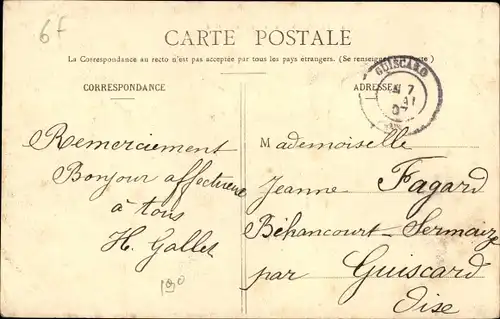 6f
CARTE POSTALE
La Correspondance au recto n'est pas acceptée par tous les pays étrangers. (Se renseigner à la Poste)
CORRESPONDANCE
ADRESSE
GUISCARD
7
07
Remerciement
Bonjour affectueux
à tous
H. Gallet
190
Mademoiselle
Jeanne Fagard
Béhancourt-Sermaize
par Guiscard
Oise